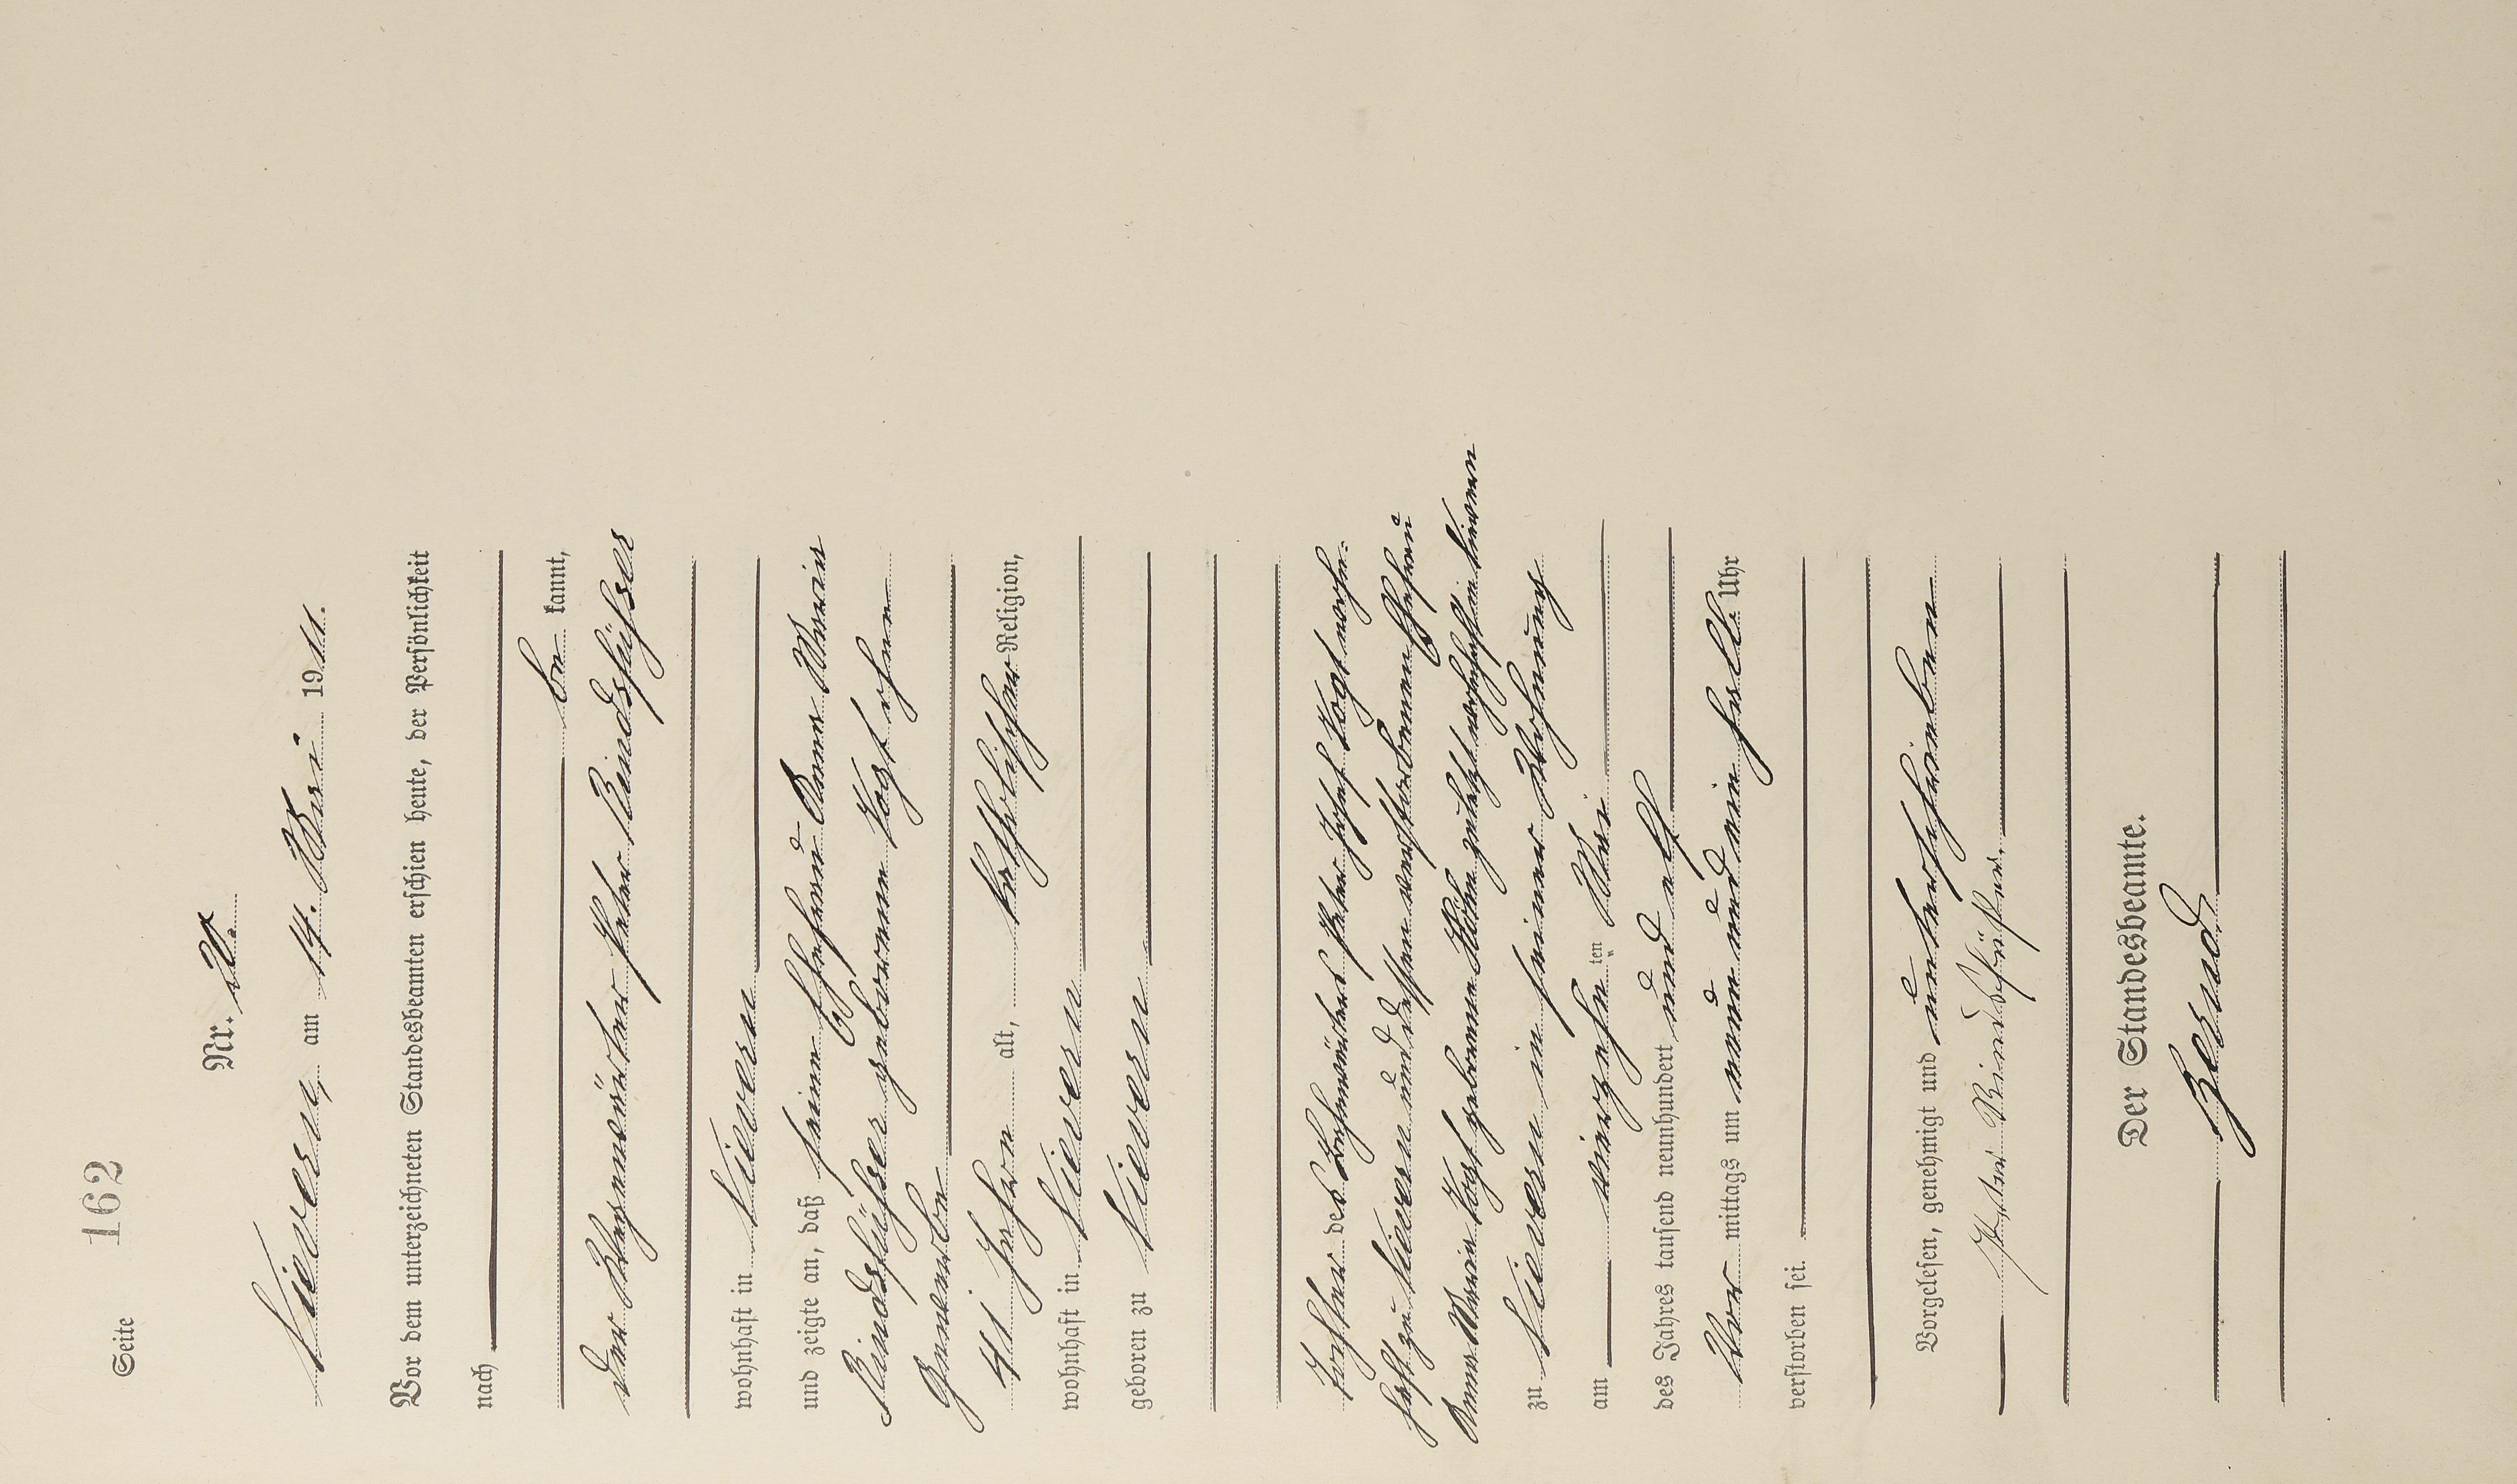 Seite 162
Nr. 20.
Nievern, am 14. Mai 1911.
Vor dem unterzeichneten Standesbeamten erschien heute, der Persönlichkeit
nach
be kannt,
der Peter Bindsfüßer
wohnhaft in Nievern
und zeigte an, daß seine Ehefrau Anna Maria
Bindsfüßer geborene Vogt ohne
Gewerbe
41 Jahre alt, katholischer Religion,
wohnhaft in Nievern
geboren zu Nievern
Tochter des Peter Josef Vogt wohn-
haft zu Nievern und dessen verstorbenen Ehefrau
Anna Maria Vogt geborene zuletzt wohnhaft in Nievern
zu Nievern in seiner Wohnung
am vierzehnten Mai
des Jahres tausend neunhundert und elf
Vor mittags um neun und ein halb Uhr
verstorben sei.
Vorgelesen, genehmigt und unterschrieben
Peter Bindsfüßer.
Der Standesbeamte.